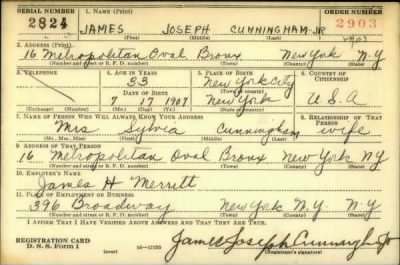 SERIAL NUMBER 1. NAME (Print) ORDER NUMBER
2824 JAMES JOSEPH CUNNINGHAM JR 2903
(First) (Middle) (Last)
2. ADDRESS (Print)
16 Metropolitan Oval Bronx New York N.Y
(Number and street or R. F. D. number) (Town) (County) (State)
3. TELEPHONE 4. AGE IN YEARS 5. PLACE OF BIRTH 6. COUNTRY OF CITIZENSHIP
33 New York City
DATE OF BIRTH (Town or county)
7 17 1907 New York U.S.A
(Exchange) (Number) (Mo.) (Day) (Yr.) (State or country)
7. NAME OF PERSON WHO WILL ALWAYS KNOW YOUR ADDRESS 8. RELATIONSHIP OF THAT PERSON
Mrs Sylvia Cunningham wife
(Mr., Mrs., Miss) (First) (Middle) (Last)
9. ADDRESS OF THAT PERSON
16 Metropolitan Oval Bronx New York N.Y
(Number and street or R. F. D. number) (Town) (County) (State)
10. EMPLOYER'S NAME
James H. Merritt
11. PLACE OF EMPLOYMENT OR BUSINESS
396 Broadway New York N.Y. N.Y
(Number and street or R. F. D. number) (Town) (County) (State)
I AFFIRM THAT I HAVE VERIFIED ABOVE ANSWERS AND THAT THEY ARE TRUE.
REGISTRATION CARD
D. S. S. Form 1 16-17105 James Joseph Cunningham Jr
(Registrant's signature)